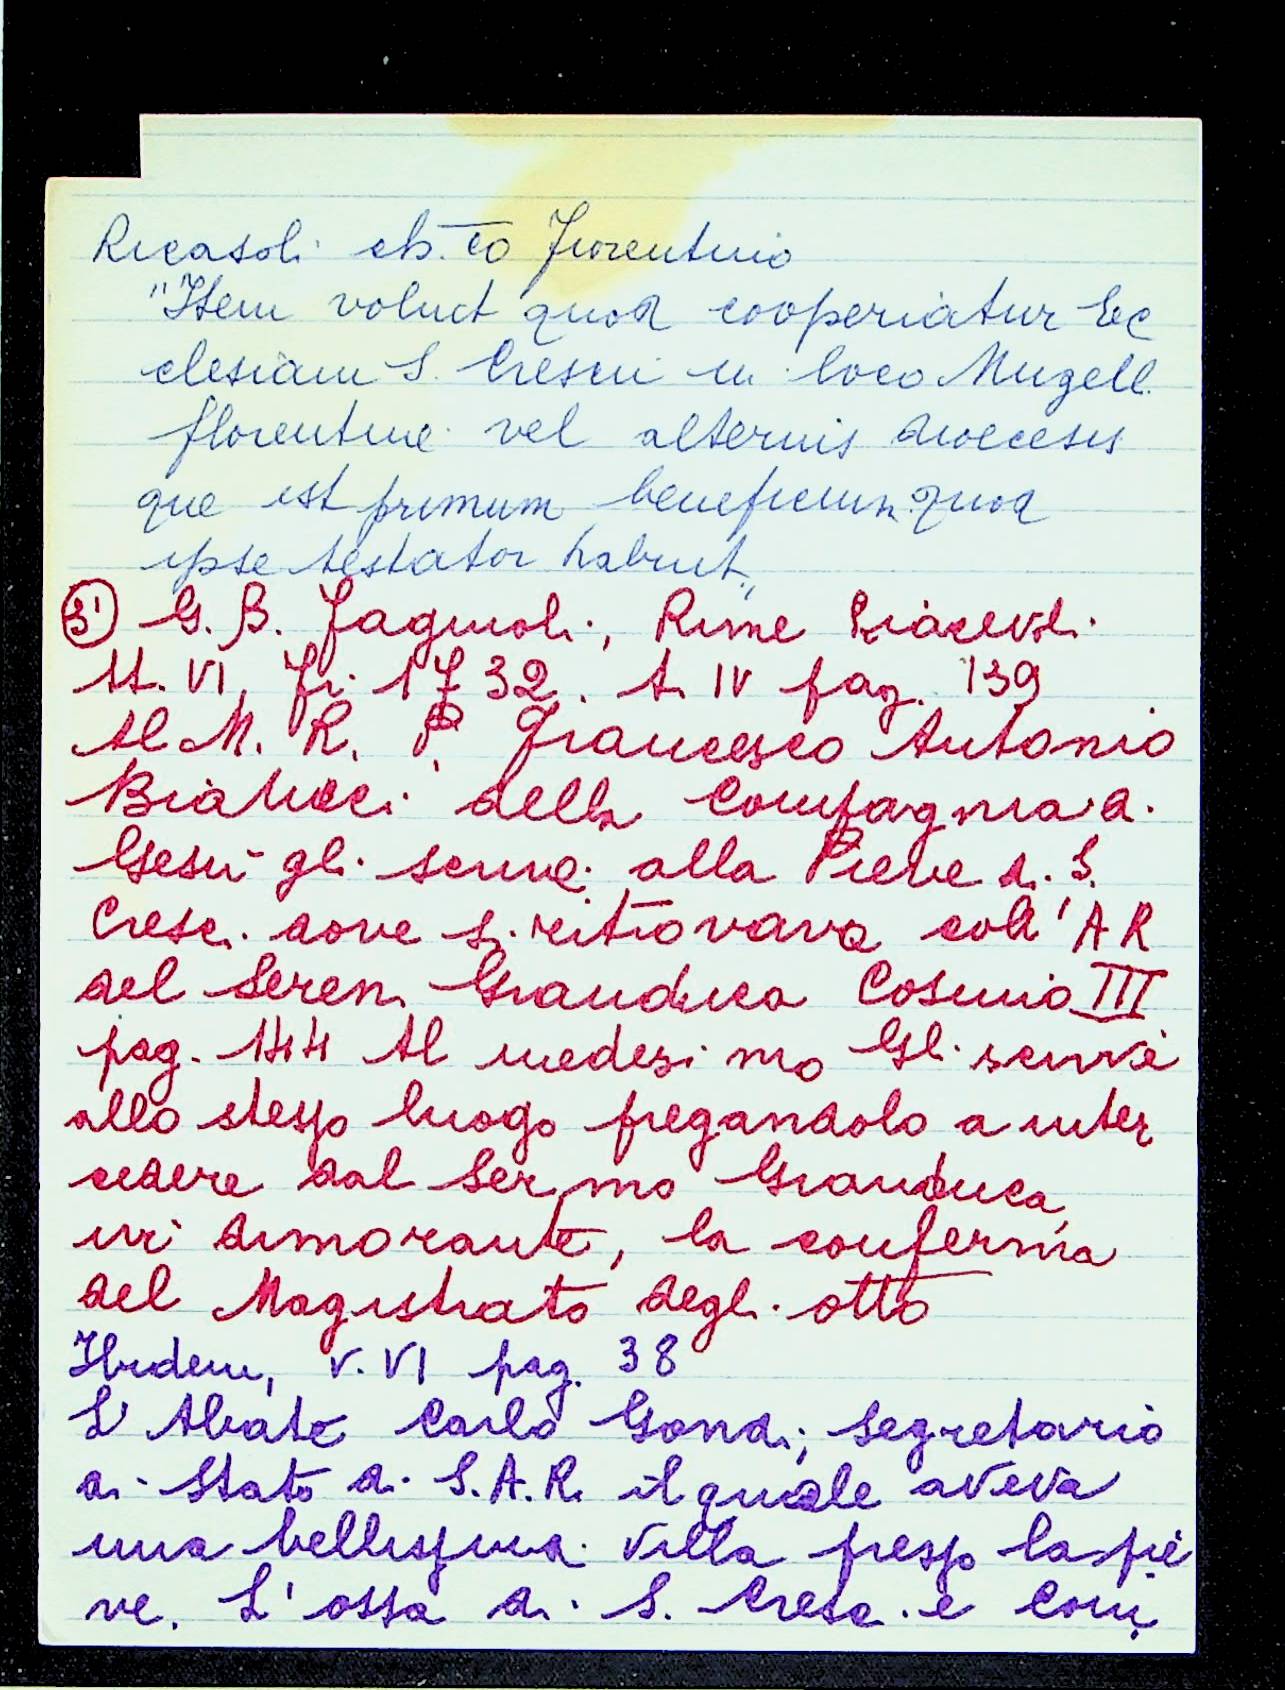 Ricasoli eb. to Fiorentino
"Item voluit quod cooperiatur Ec
clesiam S. Cresci in loco Mugell.
florentine vel alterius diocesis
que est primum beneficium quod
ipse testator habuit"
3) G. B. Fagiuoli, Rime Piacevoli
tt. VI, Fi. 1732. t. IV pag. 139
Al M. R. P. Francesco Antonio
Bialucci della Compagnia di
Gesù gli scrive alla Pieve di S.
Cresci dove si ritrovava coll'AR
del Seren. Granduca Cosimo III
pag. 144 Al medesimo Gli scrive
allo stesso luogo pregandolo a inter
cedere dal Ser.mo Granduca,
ivi dimorante, la conferma
del Magistrato degli otto
Ibidem, v. VI pag. 38
L'Abate Carlo Gondi, segretario
di Stato di S.A.R. il quale aveva
una bellissima villa presso la pie
ve. L'ossa di S. Cresci e Com